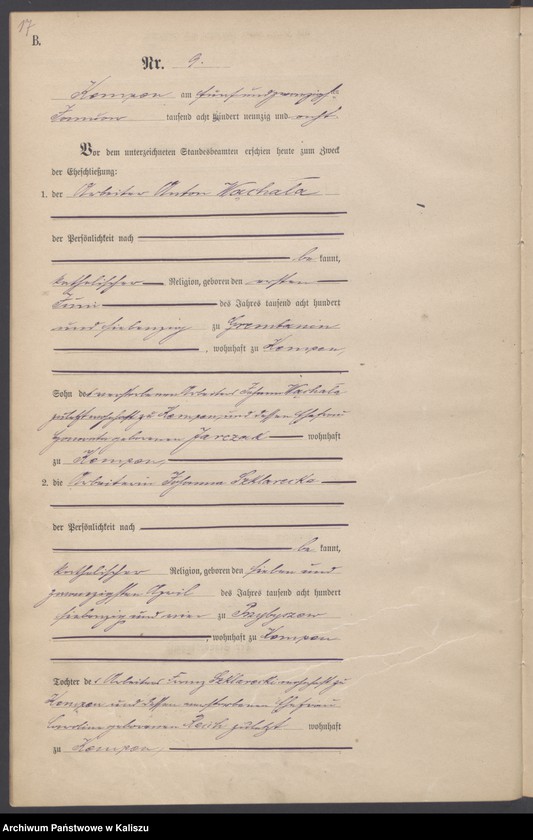 17
B.
Nr. 9.
Kempen am fünfundzwanzigsten
Januar tausend acht hundert neunzig und acht
Vor dem unterzeichneten Standesbeamten erschien heute zum Zweck
der Eheschließung:
1. der Arbeiter Anton Wąchała
der Persönlichkeit nach
be kannt,
katholischer Religion, geboren den ersten
Juni des Jahres tausend acht hundert
und siebenzig zu Grembanin
, wohnhaft zu Kempen,
Sohn des verstorbenen Arbeiters Johann Wąchała
zuletzt wohnhaft zu Kempen, und dessen Ehefrau
geborenen Jarczak wohnhaft
zu Kempen,
2. die Arbeiterin Johanna Szklarecka
der Persönlichkeit nach
be kannt,
katholischer Religion, geboren den sieben und
zwanzigsten April des Jahres tausend acht hundert
siebenzig und vier zu Przybyszow
, wohnhaft zu Kempen
Tochter des Arbeiters Franz Szklarecki wohnhaft zu
Kempen und dessen verstorbenen Ehefrau
geborenen zuletzt wohnhaft
zu Kempen,
Archiwum Państwowe w Kaliszu